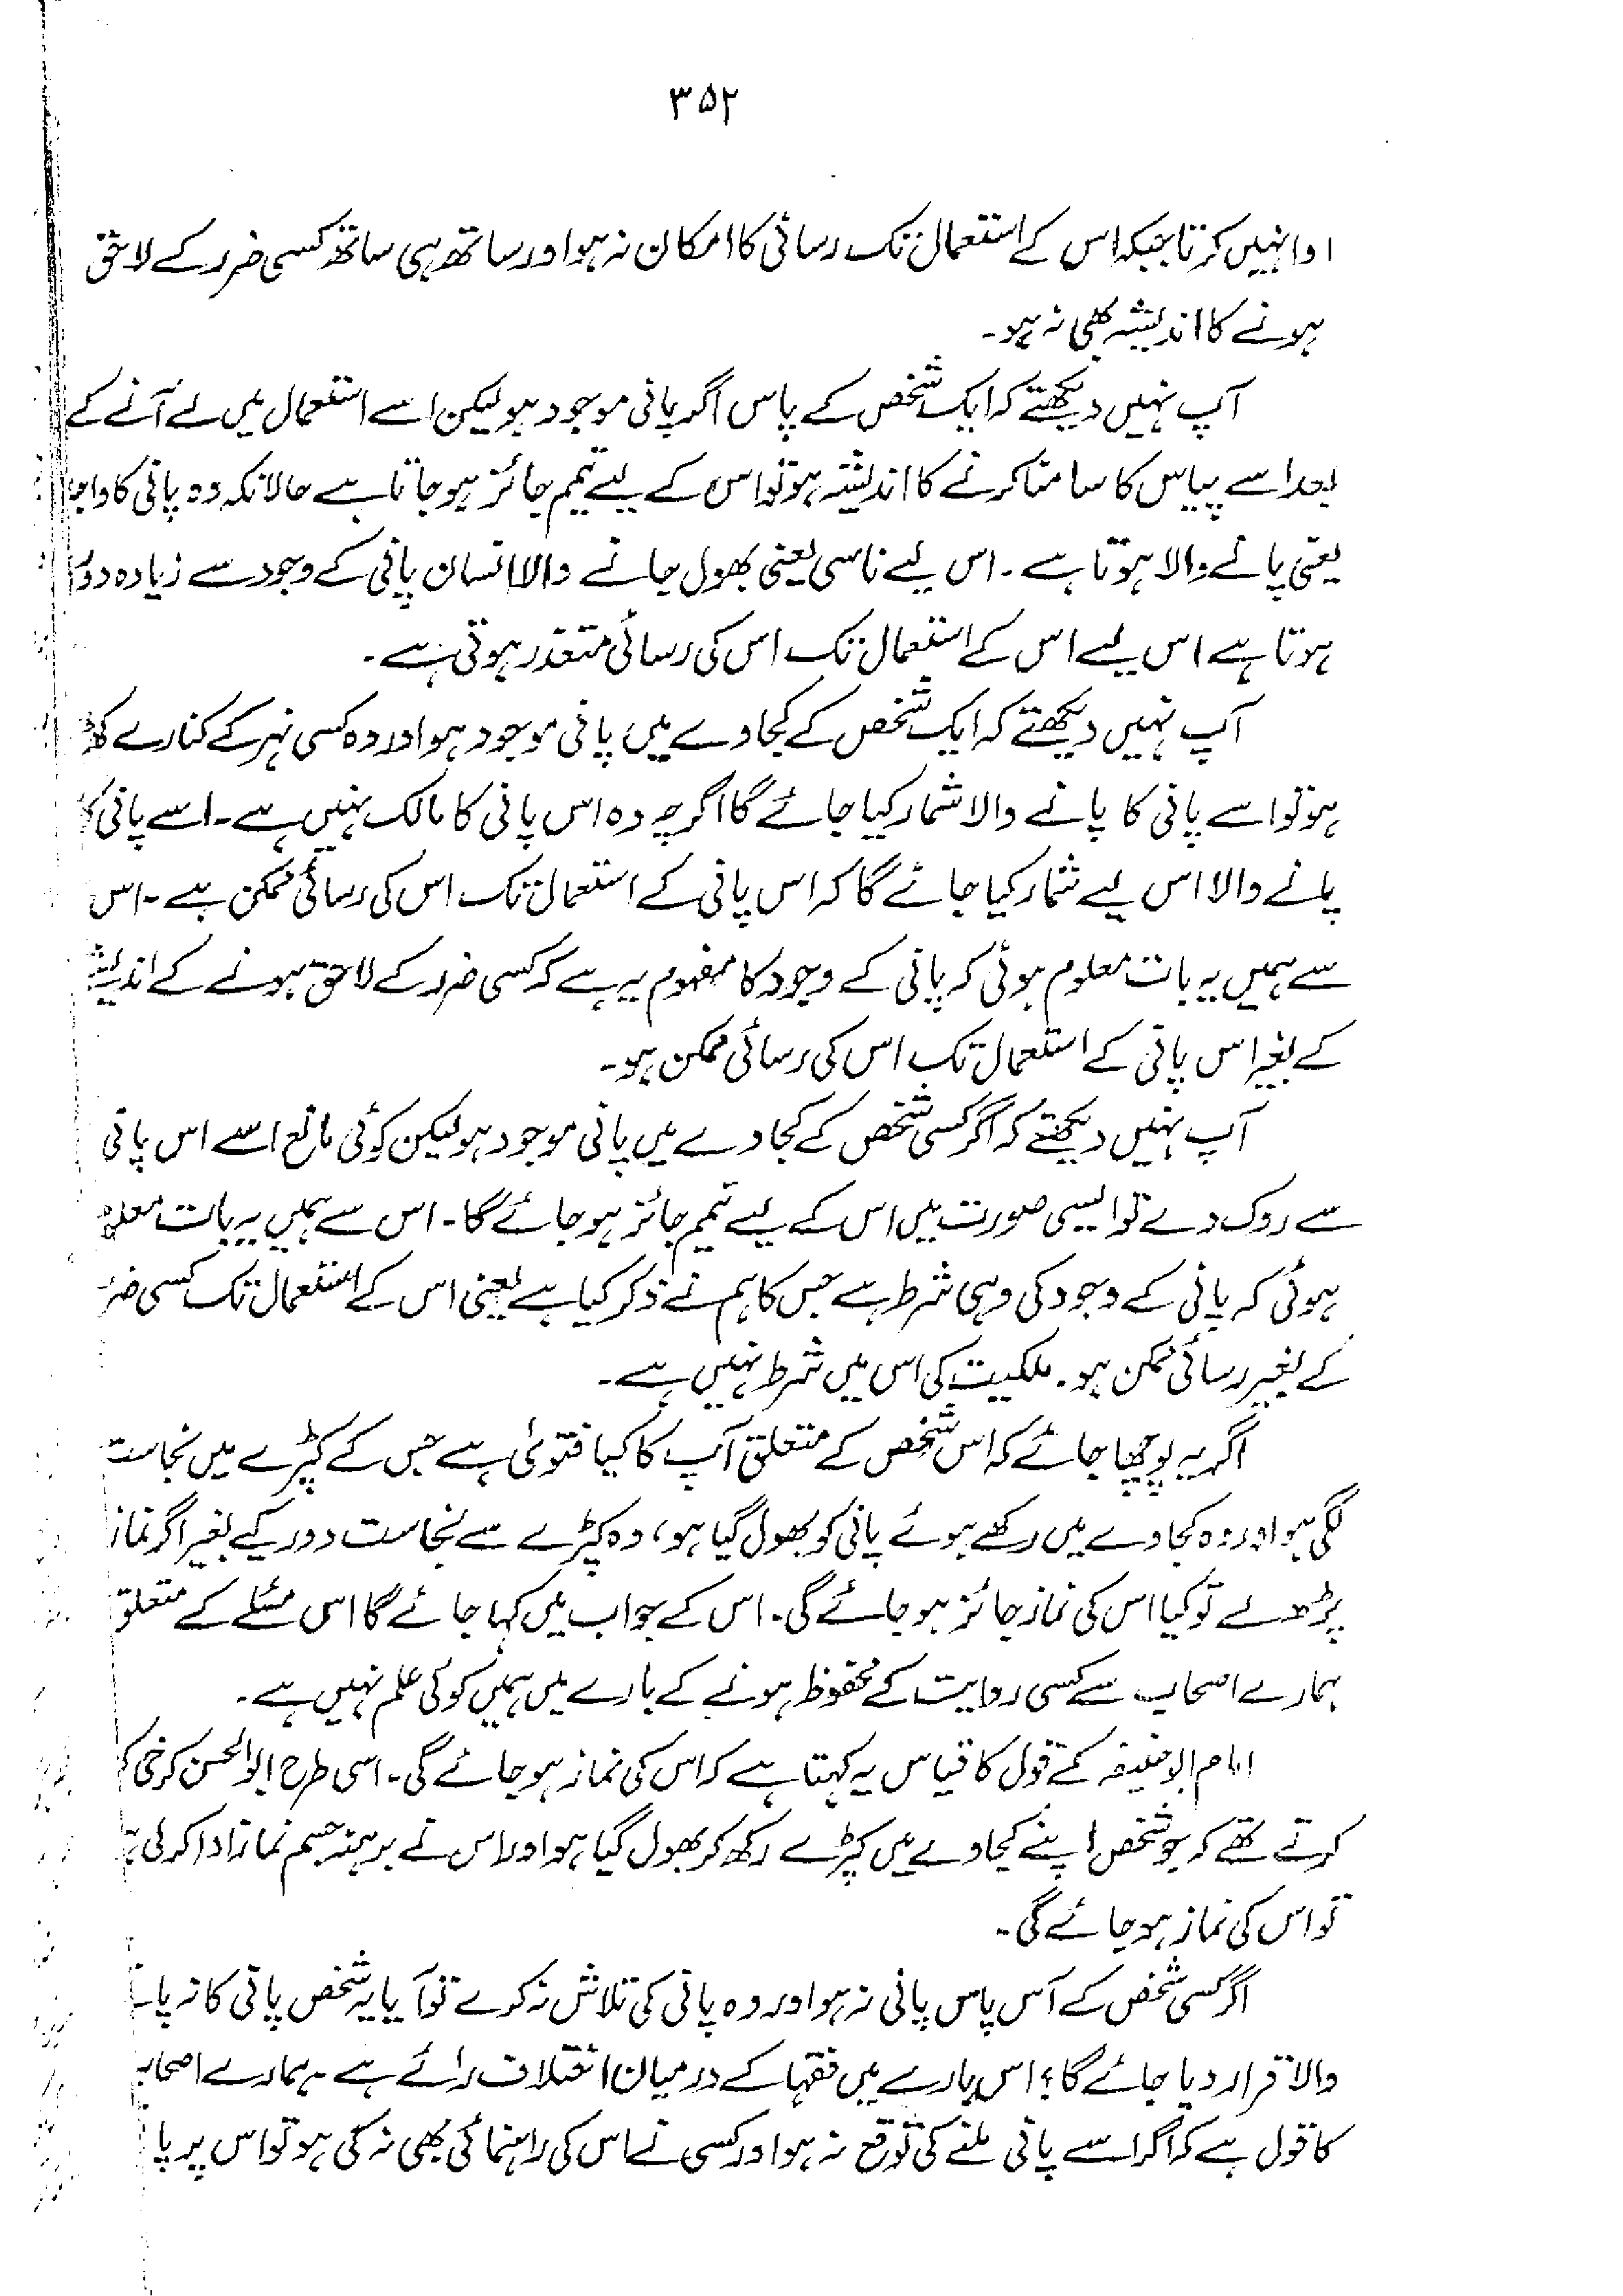 ۳۵۲
ادا نہیں کرتا جبکہ اس کے استعمال تک رسائی کا امکان نہ ہو اور ساتھ ہی ساتھ کسی ضرر کے لاحق
ہونے کا اندیشہ بھی نہ ہو۔
آپ نہیں دیکھتے کہ ایک شخص کے پاس اگر پانی موجود ہو لیکن اسے استعمال میں لے آنے کے
بعد اسے پیاس کا سامنا کرنے کا اندیشہ ہو تو اس کے لیے تیمم جائز ہو جاتا ہے حالانکہ وہ پانی کا
یعنی پانے والا ہوتا ہے۔ اس لیے ناسی یعنی بھول جانے والا انسان پانی کے وجود سے زیادہ دور
ہوتا ہے اس لیے اس کے استعمال تک اس کی رسائی متعذر ہوتی ہے۔
آپ نہیں دیکھتے کہ ایک شخص کے کجاوے میں پانی موجود ہو اور وہ کسی نہر کے کنارے
ہو تو اسے پانی کا پانے والا شمار کیا جائے گا اگرچہ وہ اس پانی کا مالک نہیں ہے۔ اسے پانی کا
پانے والا اس لیے شمار کیا جائے گا کہ اس پانی کے استعمال تک اس کی رسائی ممکن ہے۔ اس
سے ہمیں یہ بات معلوم ہوئی کہ پانی کے وجود کا مفہوم یہ ہے کہ کسی ضرر کے لاحق ہونے کے اندیشے
کے بغیر اس پانی کے استعمال تک اس کی رسائی ممکن ہو۔
آپ نہیں دیکھتے کہ اگر کسی شخص کے کجاوے میں پانی موجود ہو لیکن کوئی مانع اسے اس پانی
سے روک دے تو ایسی صورت میں اس کے لیے تیمم جائز ہو جائے گا۔ اس سے ہمیں یہ بات معلوم
ہوئی کہ پانی کے وجود کی وہی شرط ہے جس کا ہم نے ذکر کیا ہے یعنی اس کے استعمال تک کسی ضرر
کے بغیر رسائی ممکن ہو۔ ملکیت کی اس میں شرط نہیں ہے۔
اگر یہ پوچھا جائے کہ اس شخص کے متعلق آپ کا کیا فتویٰ ہے جس کے کپڑے میں نجاست
لگی ہو اور وہ کجاوے میں رکھے ہوئے پانی کو بھول گیا ہو، وہ کپڑے سے نجاست دور کیے بغیر اگر نماز
پڑھ لے تو کیا اس کی نماز جائز ہو جائے گی۔ اس کے جواب میں کہا جائے گا اس مسئلے کے متعلق
ہمارے اصحاب سے کسی روایت کے محفوظ ہونے کے بارے میں ہمیں کوئی علم نہیں ہے۔
امام ابوحنیفہ کے قول کا قیاس یہ کہتا ہے کہ اس کی نماز ہو جائے گی۔ اسی طرح ابوالحسن کرخی
کرتے تھے کہ جو شخص اپنے کجاوے میں کپڑے رکھ کر بھول گیا ہو اور اس نے برہنہ جسم نماز ادا کر لی
تو اس کی نماز ہو جائے گی۔
اگر کسی شخص کے آس پاس پانی نہ ہو اور وہ پانی کی تلاش نہ کرے تو آیا یہ شخص پانی کا نہ پا
والا قرار دیا جائے گا؛ اس بارے میں فقہا کے درمیان اختلاف رائے ہے۔ ہمارے اصحاب
کا قول ہے کہ اگر اسے پانی ملنے کی توقع نہ ہو اور کسی نے اس کی راہنمائی بھی نہ کی ہو تو اس پر پا